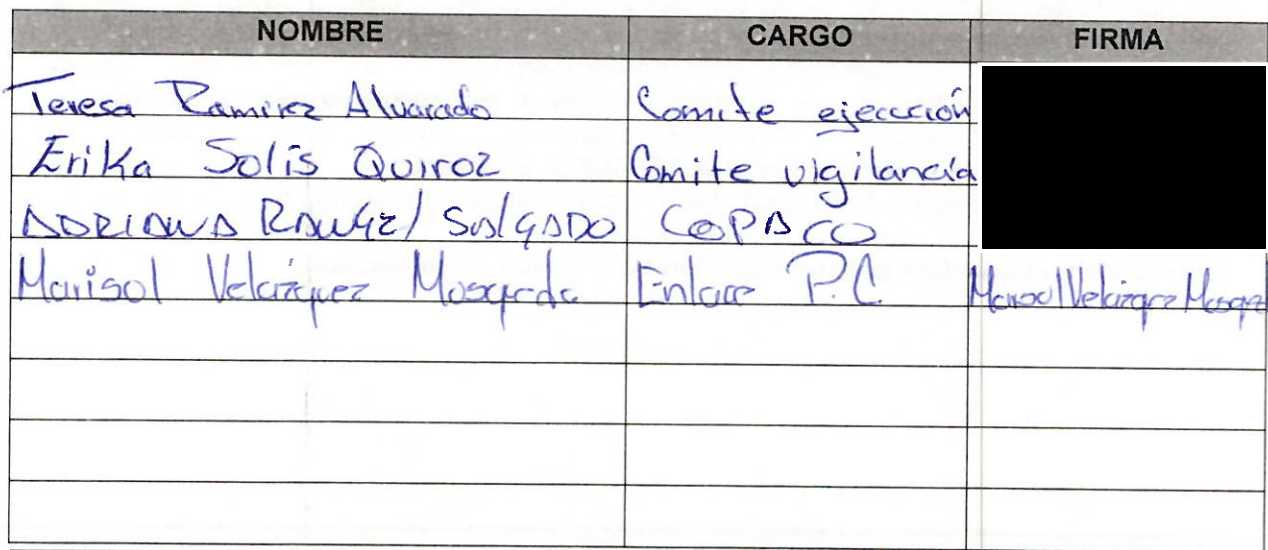 NOMBRE CARGO FIRMA
Teresa Ramirez Alvarado Comite ejecución
Erika Solis Quiroz Comite vigilancia
ADRIANA SALGADO COPACO
Marisol Velazquez Enlace P.C. Marisol Velazquez